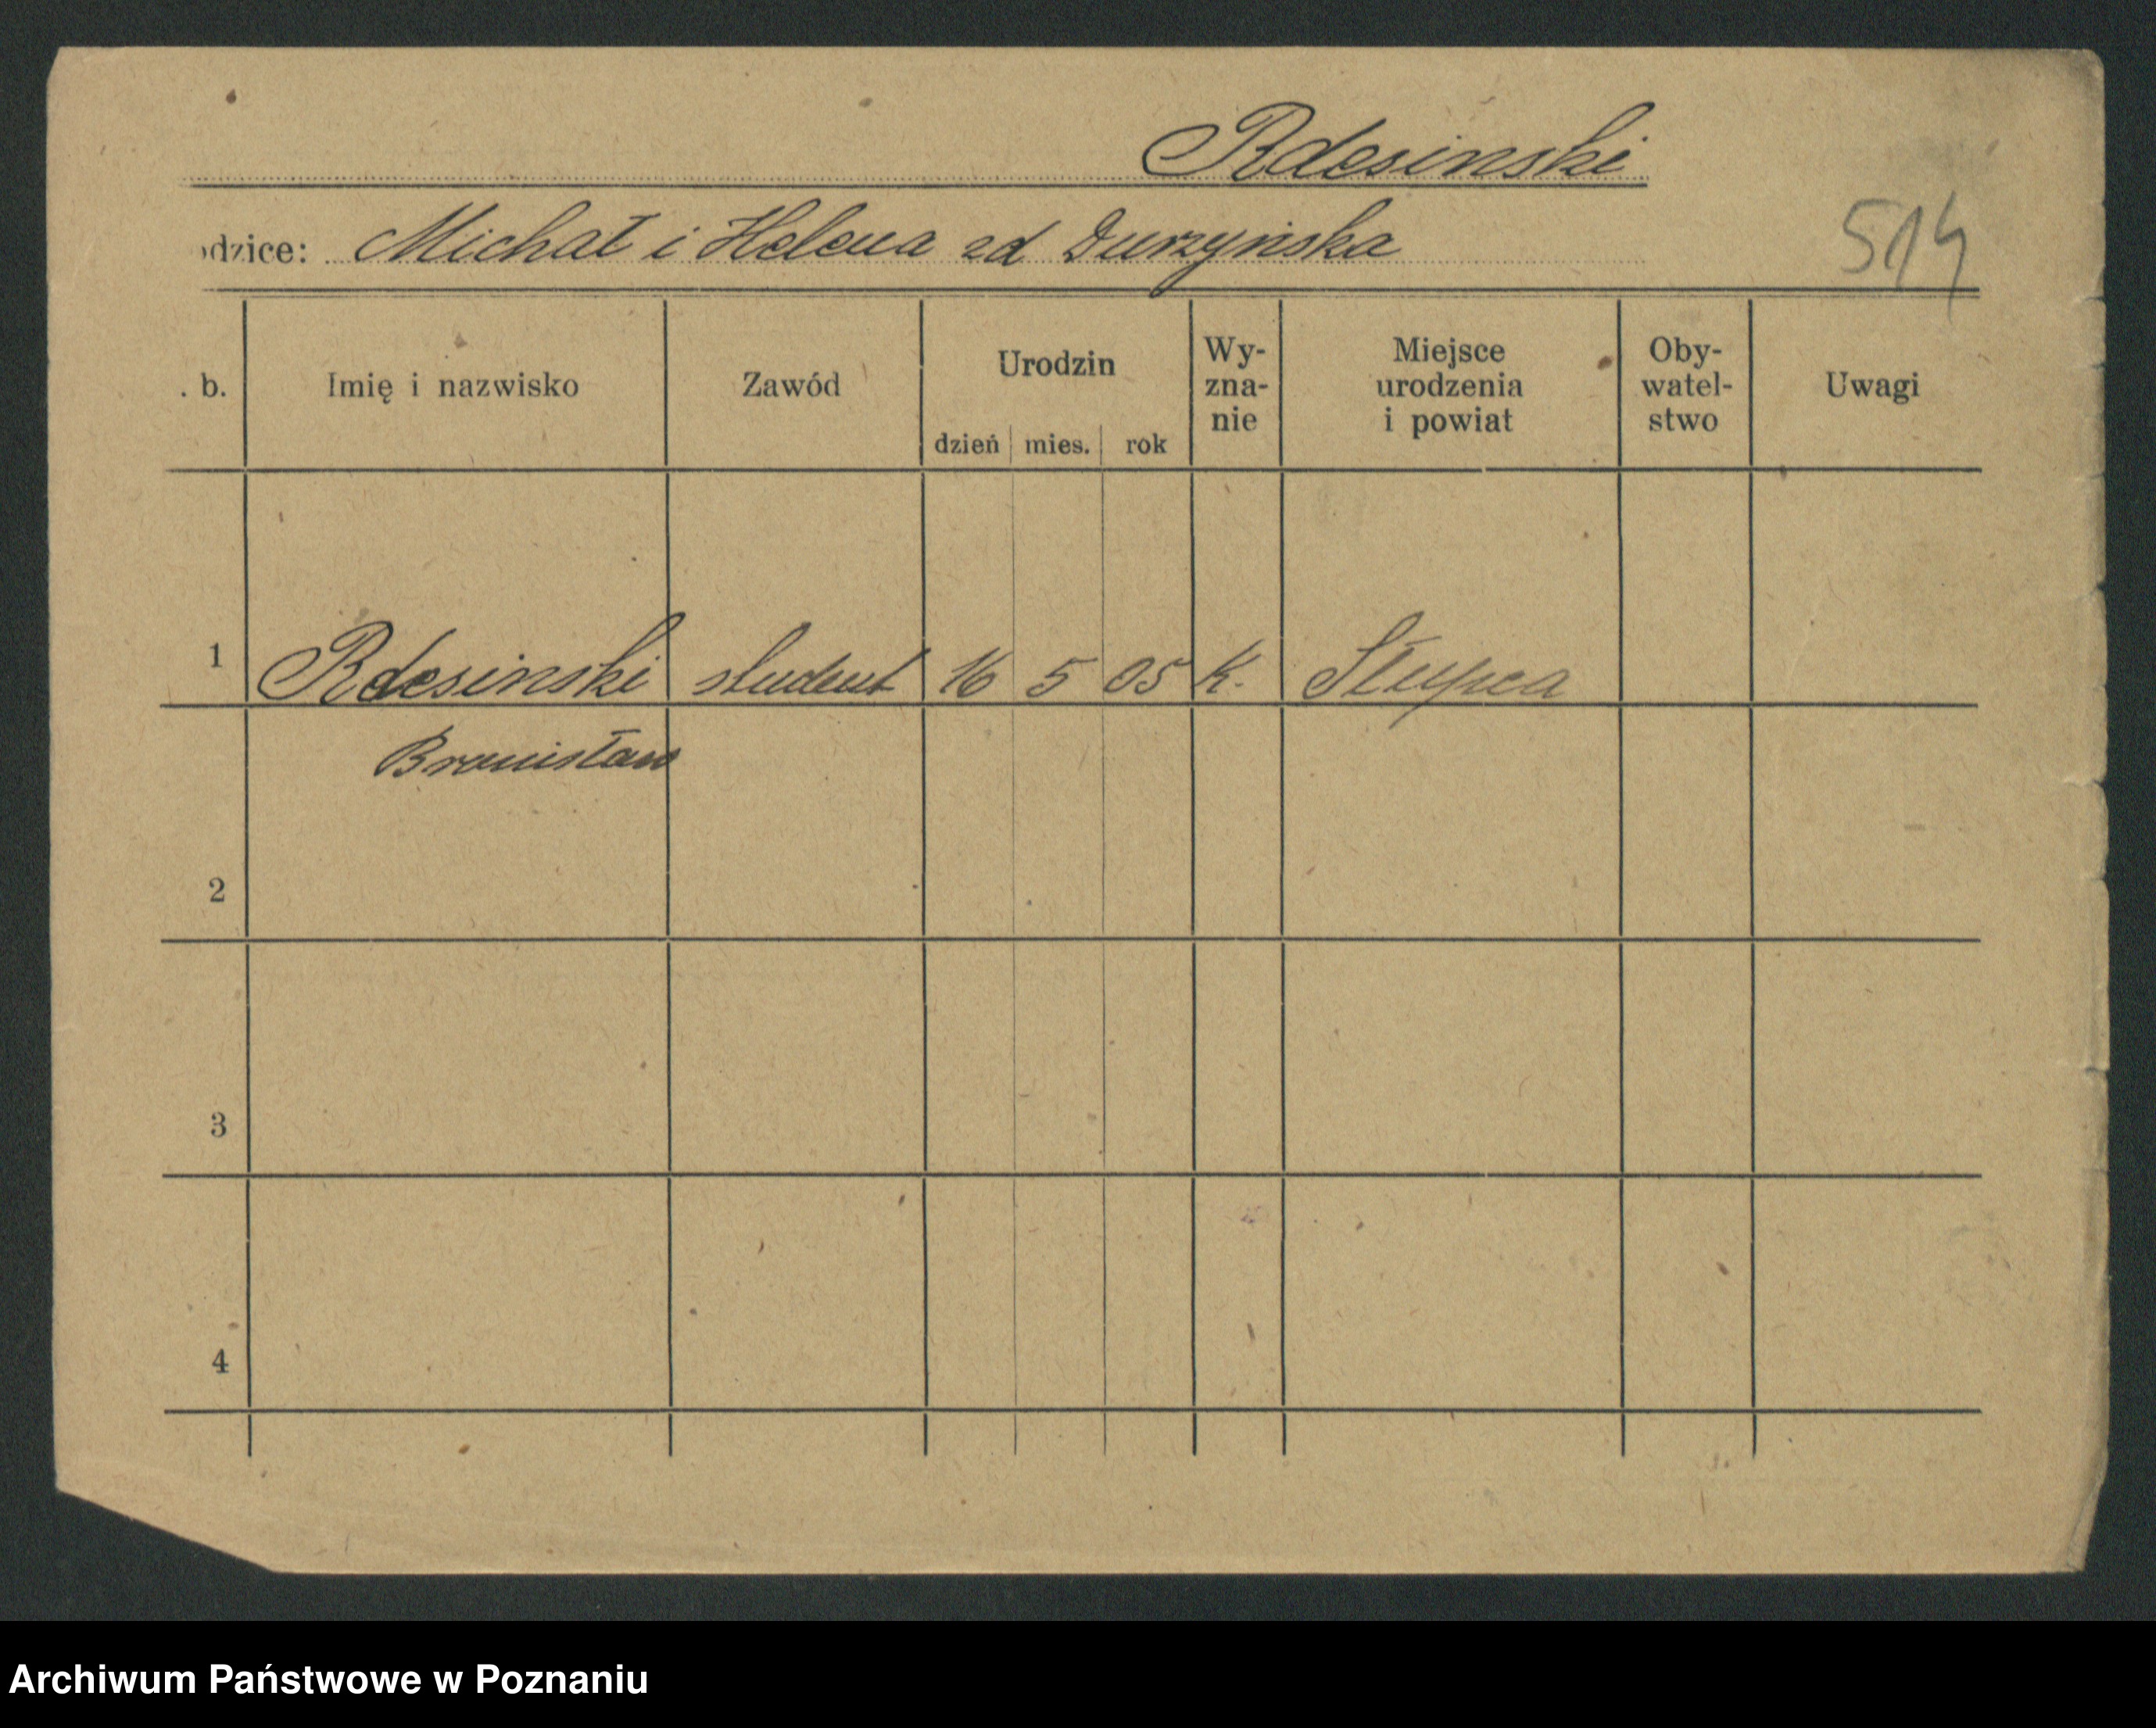 Rdesinski
odzice: Michał i Helena zd Durzyńska
514
. b. Imię i nazwisko Zawód Urodzin dzień mies. rok Wy-zna-nie Miejsce urodzenia i powiat Oby-watel-stwo Uwagi
1 Rdesinski student 16 5 05 K. Słupca
Bronisław
2
3
4
Archiwum Państwowe w Poznaniu